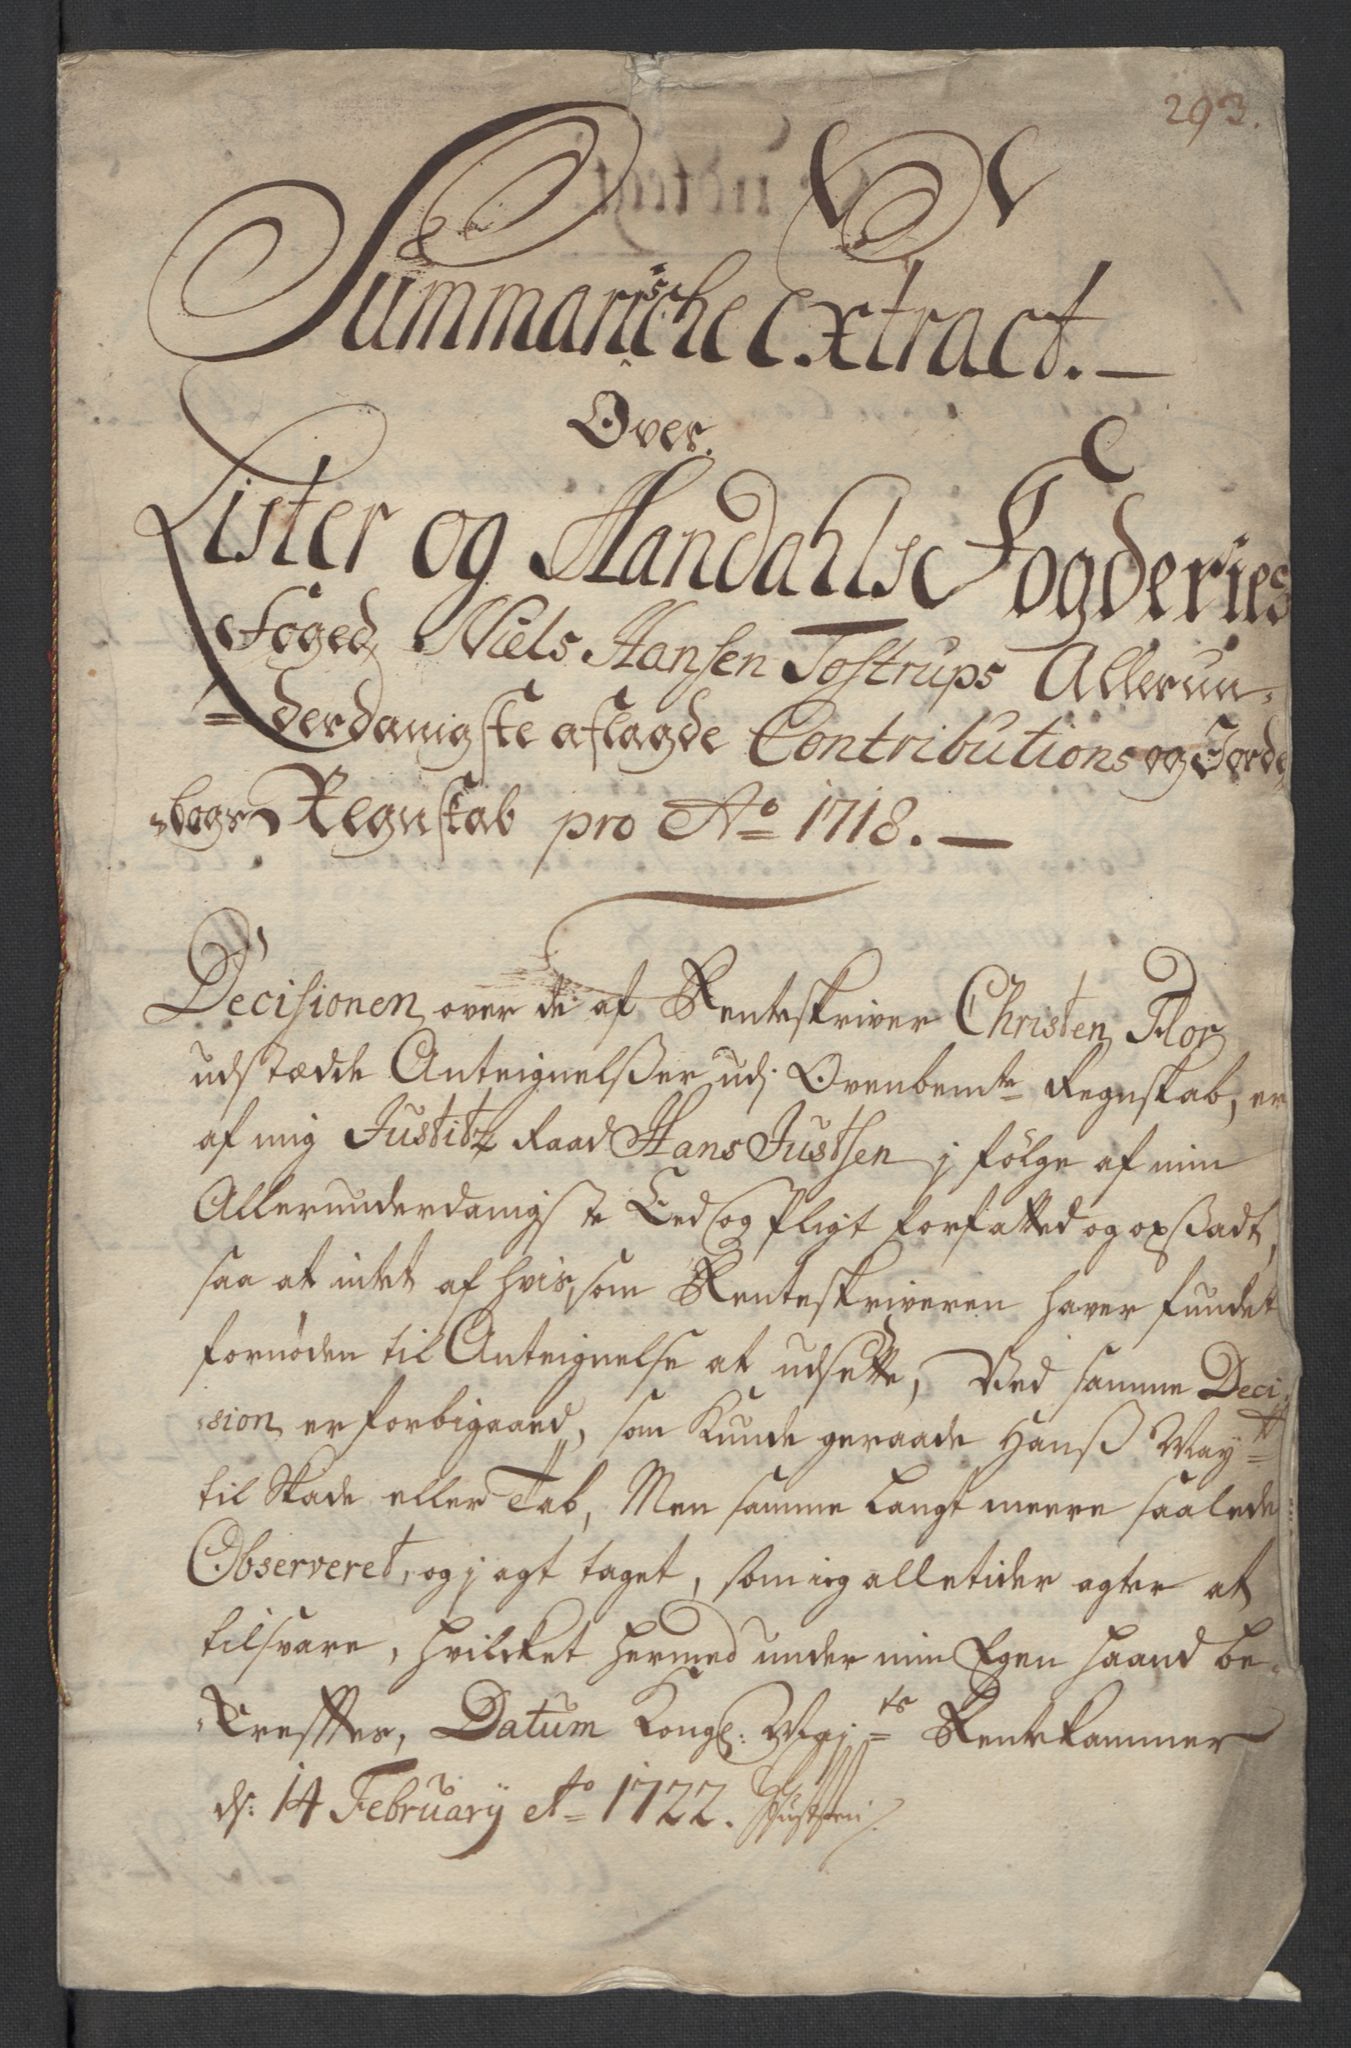 293.
Summarische Extract.
Over
Lister og Mandahls Fogderies
Foged Niels Hansen Tostrups Allerun-
derdanigste aflagde Contributions og Jorde
bogs Regnskab pro Ao 1718.
Decisionen over de af Renteskriver Christen Flor
udstædde Anteignelßer udj Ovenbemte Regnskab, er
af mig Justitz Raad Hans Justsen j følge af min
Allerunderdanigste Eed og Pligt forfatted og opßadt,
saa at intet af hvis, som Renteskriveren haver fundet
fornøden til Anteignelse at udsette, Ved samme Deci
sion er forbigaaed, som kunde geraade Hanß Maytt
til Skade eller Tab, Men samme langt meere saalede
Observeret, og j agt taget, som ieg alletider agter at
tilsvare, hvilcket hermed under min Egen haand be-
kreffter, Datum Kongl: Maj:ts Rentekammer
ds: 14 February Ao 1722. HJustsen